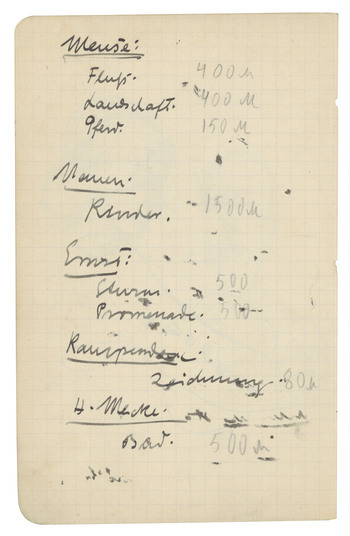 Mense:
Fluß. 400 M
Landschaft. 400 M
Pferd. 150 M
Nauen.
Kinder. 1500 M
Ernst:
Sturm. 500
Promenade. 500
Zeichnung. 80 M
H. Macke.
Bad. 500 M